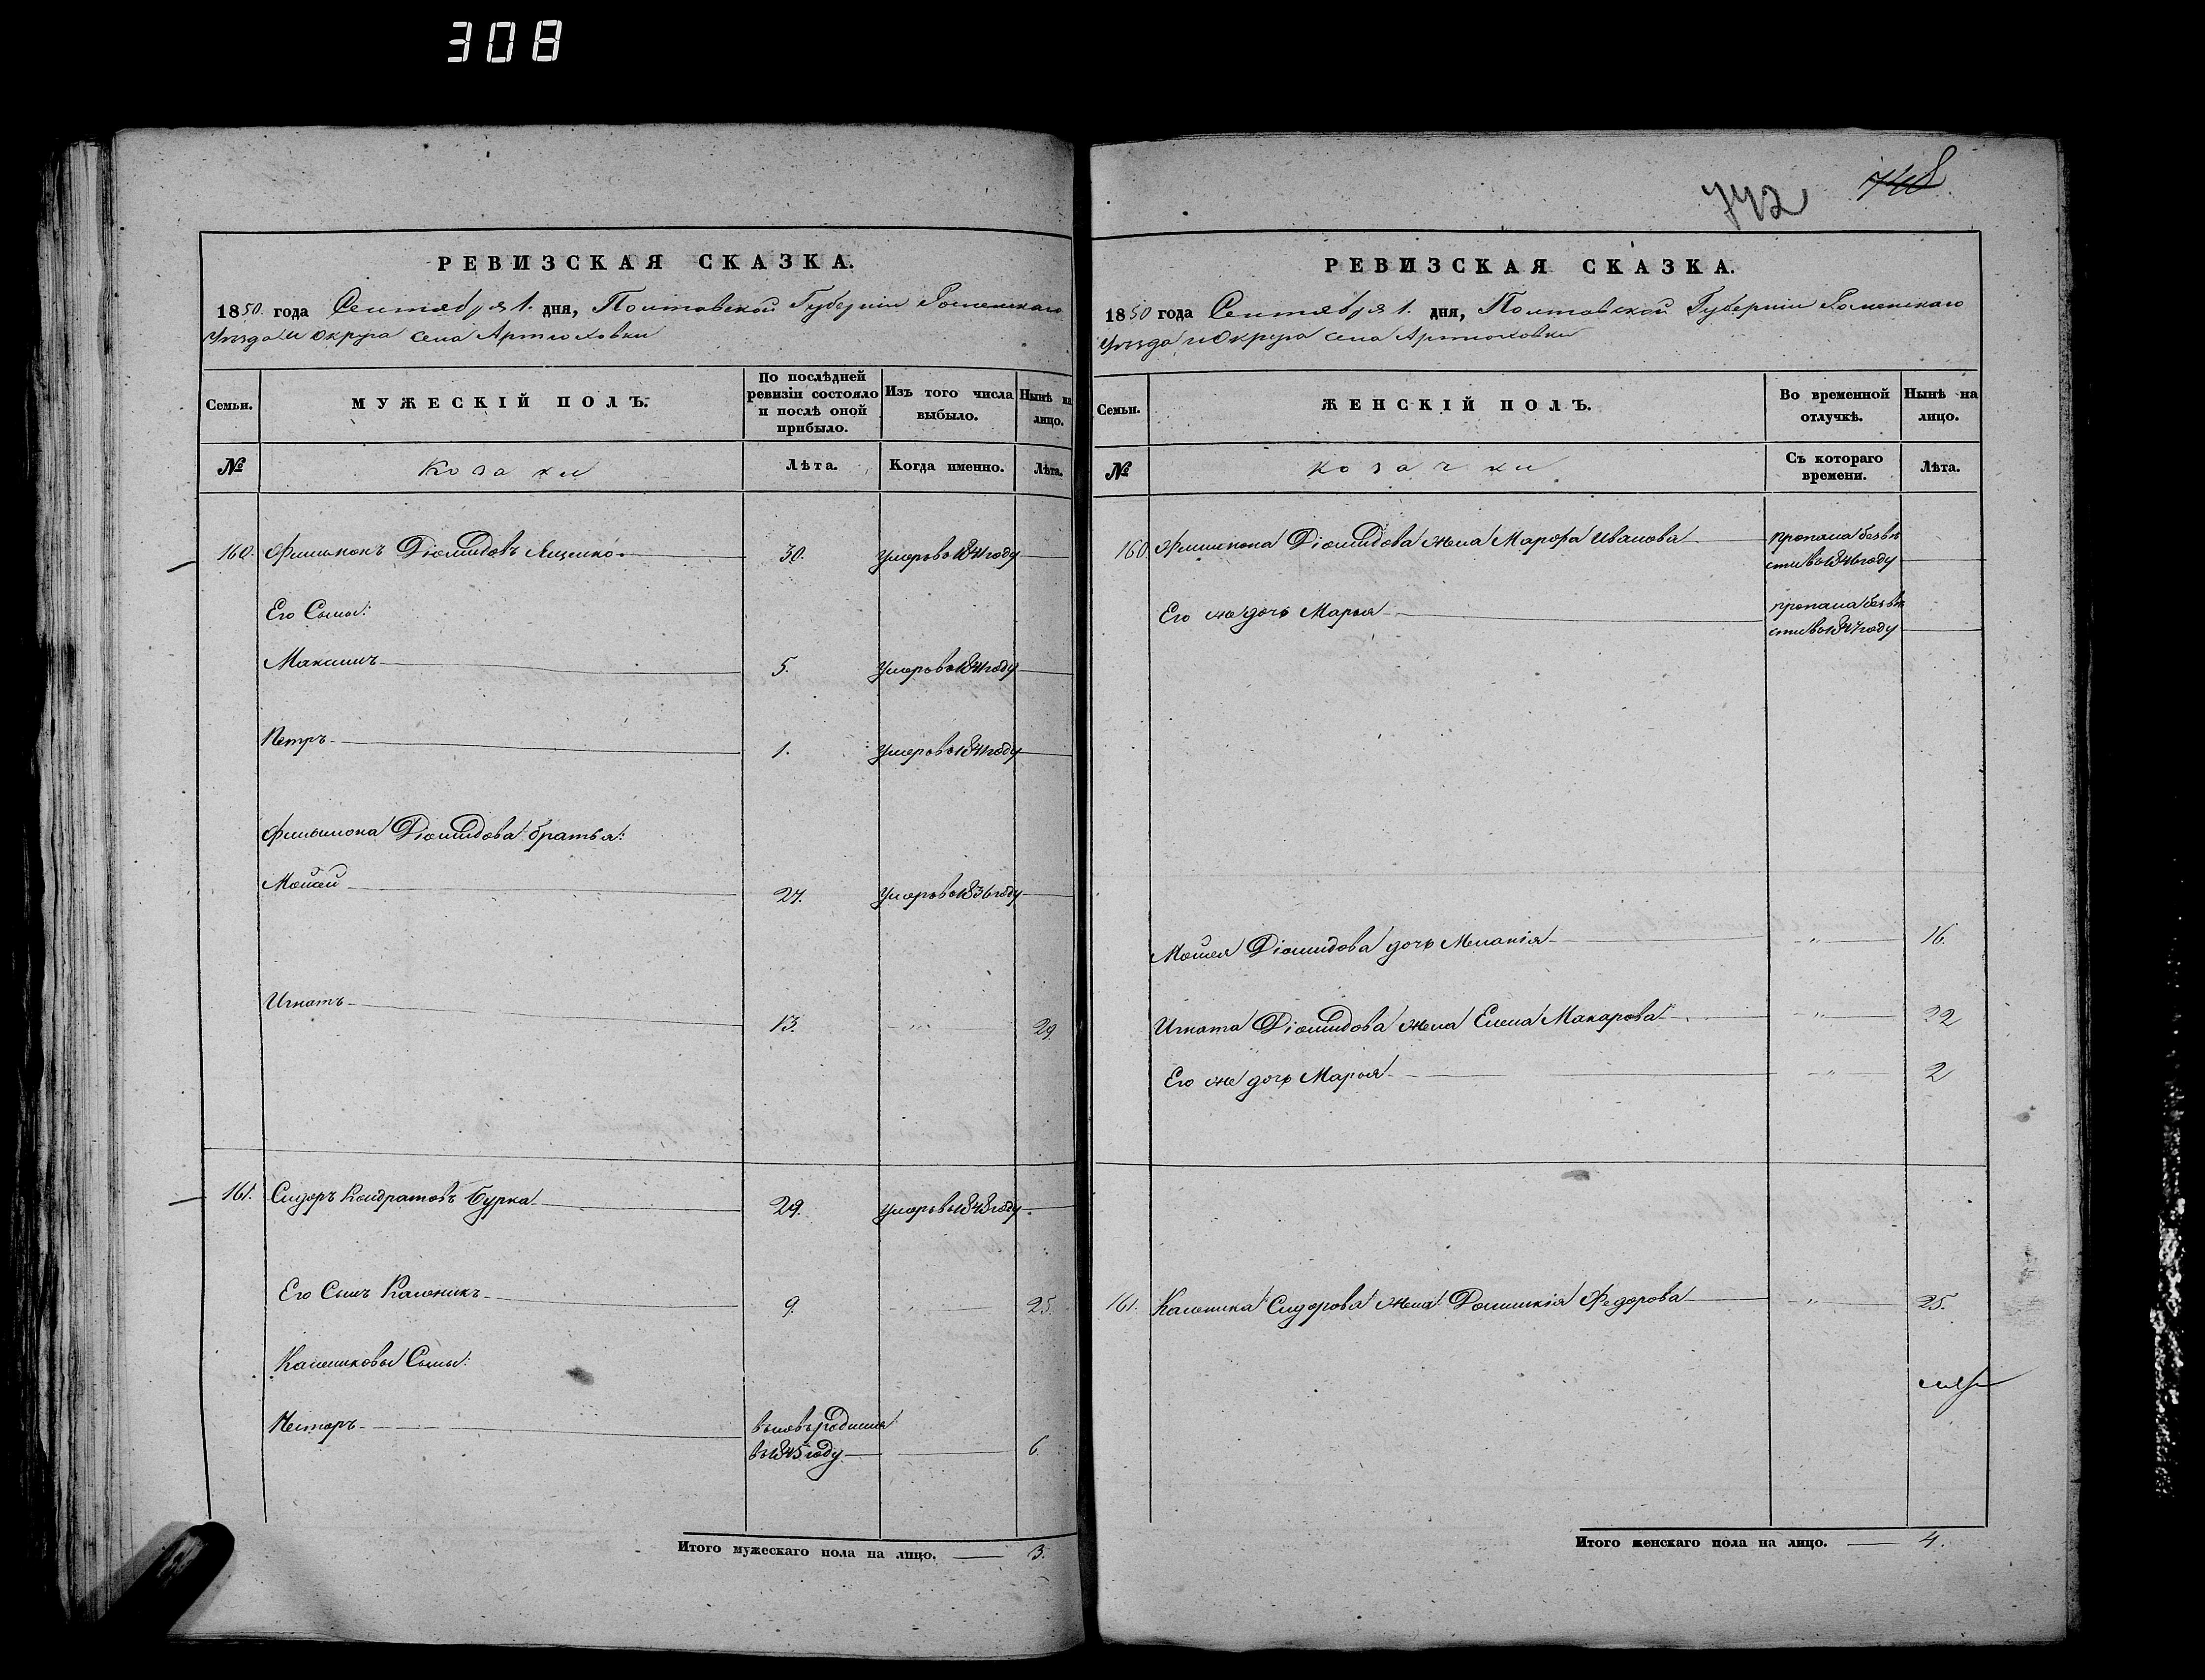 308
РЕВИЗСКАЯ СКАЗКА.
1850 года Сентября 1. дня, Полтавской Губерніи Роменскаго
Уѣзда и Округа села Артюховки
Семьи.
МУЖЕСКІЙ ПОЛЪ.
По послѣдней ревизіи состояло и послѣ оной прибыло.
Изъ того числа выбыло.
Нынѣ на лицо.
№
Козаки
Лѣта.
Когда именно.
Лѣта.
160. Филимонъ Діомидовъ Ященко 30. Умеръ въ 1841 году
Его Сыны:
Максимъ 5. Умеръ въ 1841 году
Петръ 1. Умеръ въ 1841 году
Филимона Діомидова братья:
Моисей 27. Умеръ въ 1836 году
Игнатъ 13. 29.
161. Сидоръ Кондратовъ Бурка 29. умеръ въ 1848 году
Его Сынъ Каленикъ 9. 25.
Калениковы Сыны:
Несторъ вновь родился
въ 1845 году 6
Итого мужескаго пола на лицо. 3.
742 748
РЕВИЗСКАЯ СКАЗКА.
1850 года Сентября 1. дня, Полтавской Губерніи Роменскаго
Уѣзда и Округа села Артюховки
Семьи.
ЖЕНСКІЙ ПОЛЪ.
Во временной отлучкѣ.
Нынѣ на лицо.
№
козачки
Съ котораго времени.
Лѣта.
160. Филимона Діомидова жена Марфа Иванова пропала безвѣ
сти въ 1846 году
Его же дочь Марья пропала безвѣ
сти въ 1847 году
Моисея Діомидова дочь Меланія " 16.
Игната Діомидова жена Елена Макарова " 22
Его же дочь Марья " 2
161. Каленика Сидорова жена Домникія Федорова " 25.
Итого женскаго пола на лицо. 4.